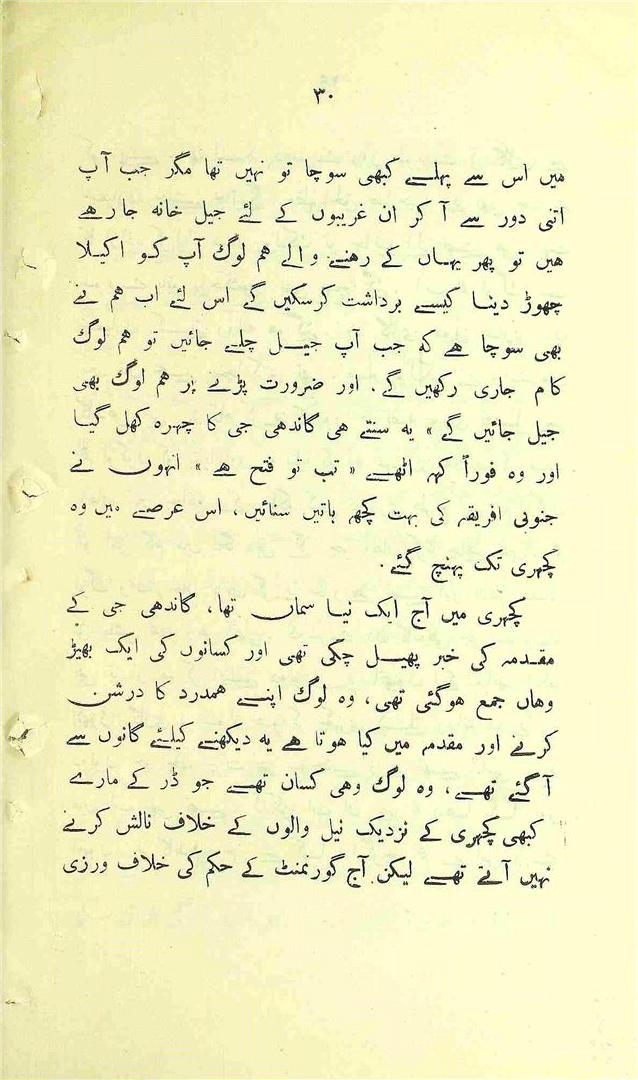 ۳۰
میں اس سے پہلے کبھی سوچا تو نہیں تھا مگر جب آپ
اتنی دور سے آ کر ان غریبوں کے لئے جیل خانہ جا رہے
ہیں تو پھر یہاں کے رہنے والے ہم لوگ آپ کو اکیلا
چھوڑ دینا کیسے برداشت کرسکیں گے اس لئے اب ہم نے
بھی سوچا ہے کہ جب آپ جیل چلے جائیں تو ہم لوگ
کام جاری رکھیں گے. اور ضرورت پڑے پر ہم لوگ بھی
جیل جائیں گے » یہ سنتے ہی گاندھی جی کا چہرہ کھل گیا
اور وہ فوراً کہہ اٹھے « تب تو فتح ہے » انہوں نے
جنوبی افریقہ کی بہت کچھ باتیں سنائیں، اس عرصے میں وہ
کچہری تک پہنچ گئے.
کچہری میں آج ایک نیا سماں تھا، گاندھی جی کے
مقدمہ کی خبر پھیل چکی تھی اور کسانوں کی ایک بھیڑ
وہاں جمع ہوگئی تھی، وہ لوگ اپنے ہمدرد کا درشن
کرنے اور مقدمہ میں کیا ہوتا ہے یہ دیکھنے کیلئے گانوں سے
آ گئے تھے، وہ لوگ وہی کسان تھے جو ڈر کے مارے
کبھی کچہری کے نزدیک نیل والوں کے خلاف نالش کرنے
نہیں آتے تھے لیکن آج گورنمنٹ کے حکم کی خلاف ورزی